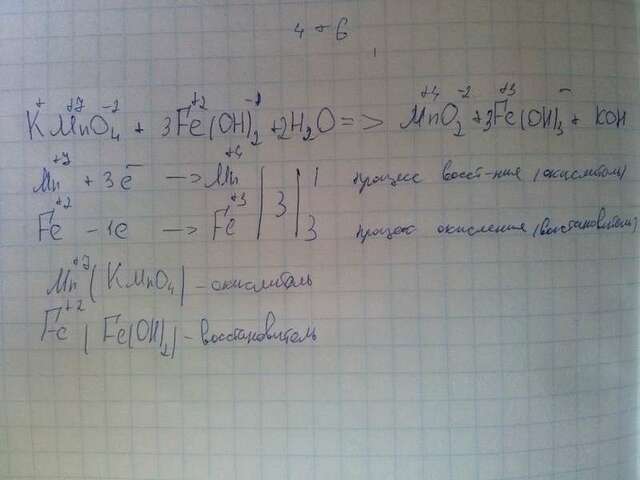 4 - 6
K⁺Mn⁺⁷O₄⁻² + 3Fe⁺²(OH)₂⁻¹ + 2H₂O => Mn⁺⁴O₂⁻² + 3Fe⁺³(OH)₃⁻ + KOH
Mn⁺⁷ + 3e⁻ → Mn⁺⁴ | 3 | 1 процесс восст-ния (окислитель)
Fe⁺² - 1e → Fe⁺³ | 3 процесс окисления (восстановитель)
Mn⁺⁷ (KMnO₄) - окислитель
Fe⁺² (Fe(OH)₂) - восстановитель